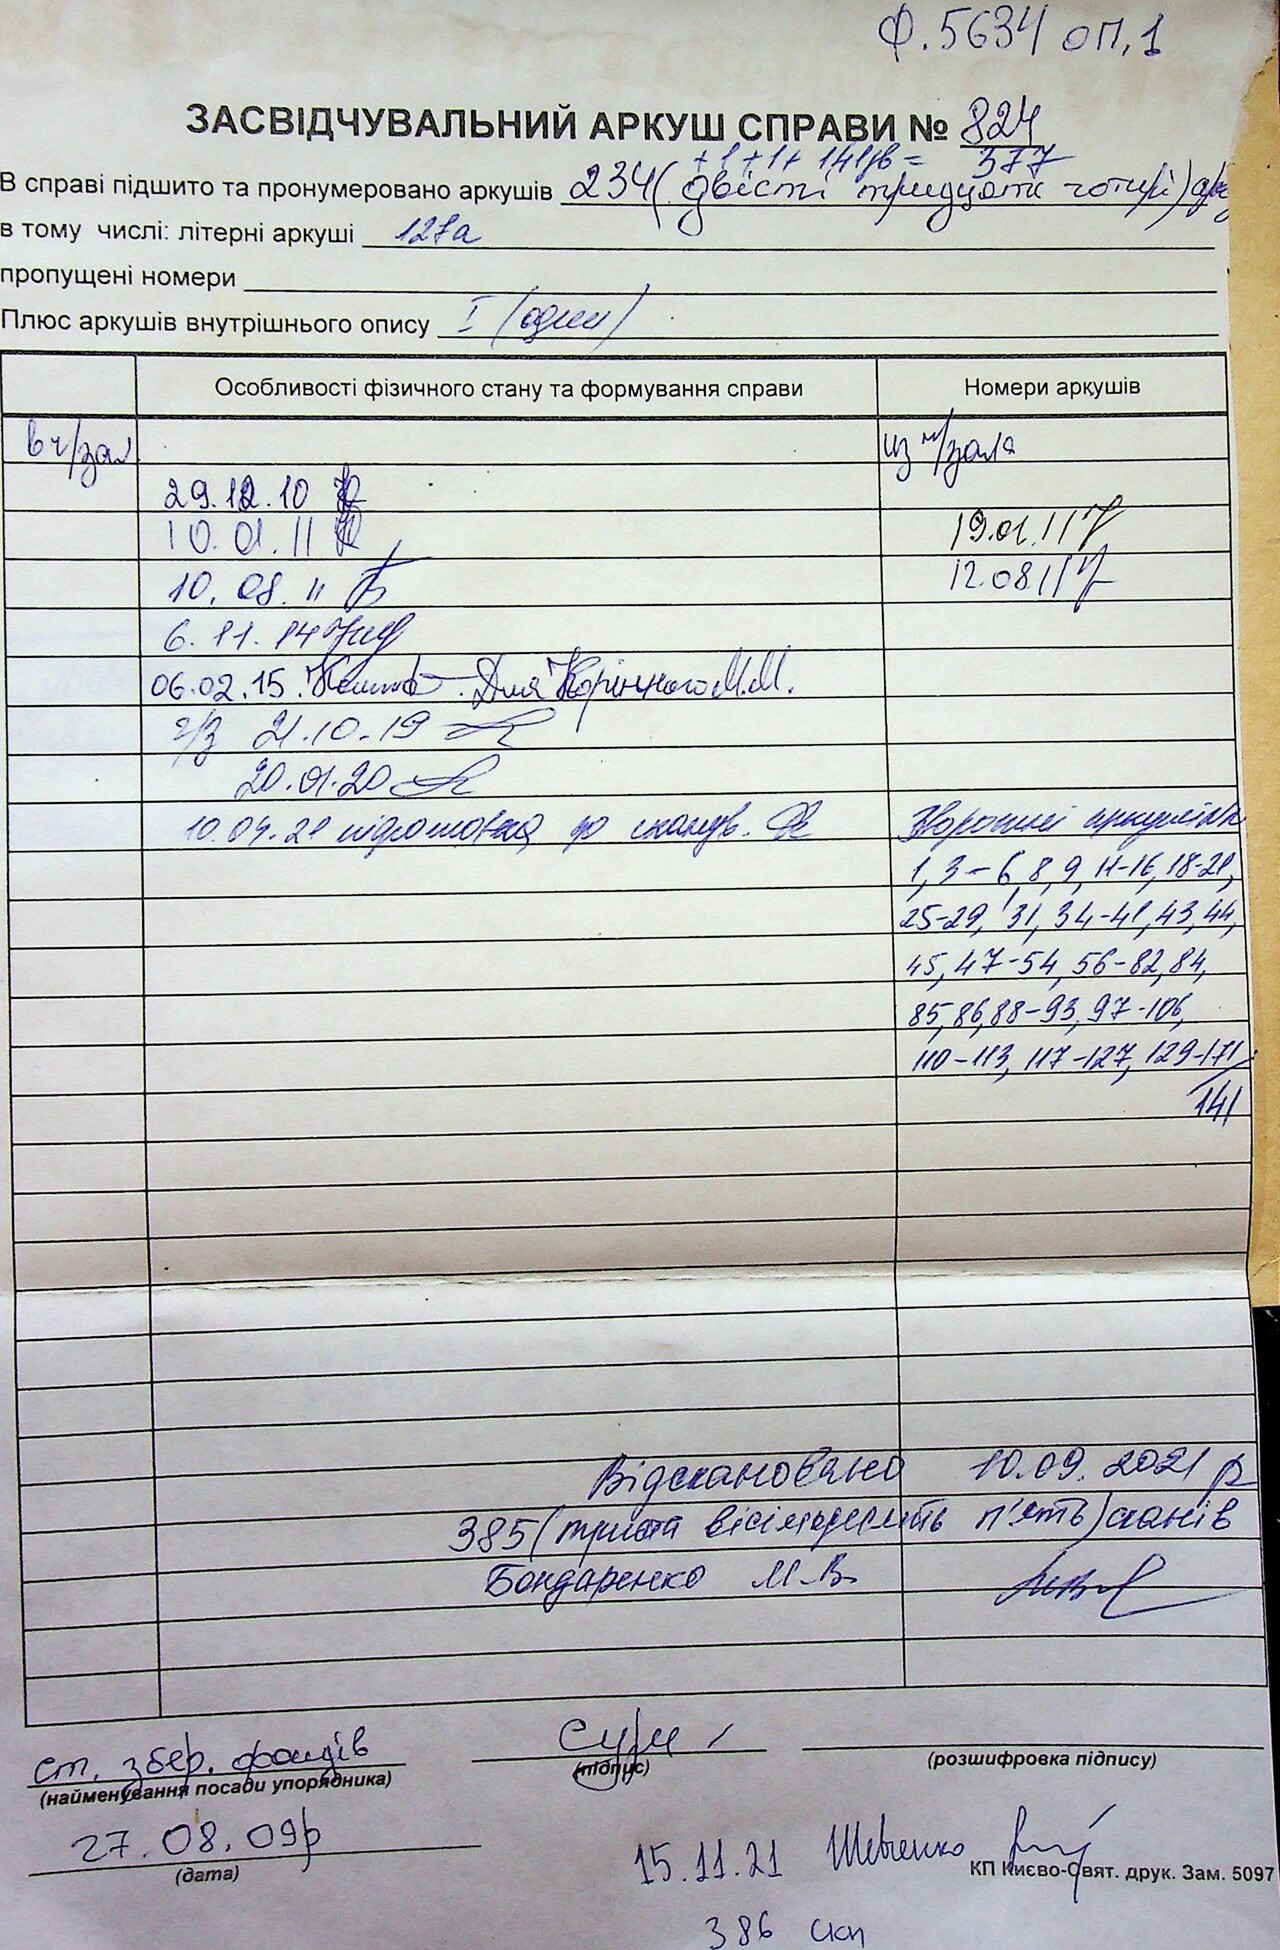 Ф. 5634 оп. 1
ЗАСВІДЧУВАЛЬНИЙ АРКУШ СПРАВИ № 824
+1+1+141зв = 377
В справі підшито та пронумеровано аркушів 234 (двісті тридцять чотирі)
в тому числі: літерні аркуші 127а
пропущені номери
Плюс аркушів внутрішнього опису I (один)
Особливості фізичного стану та формування справи Номери аркушів
в ч/зал из ч/зала
29.12.10
10.01.11 19.01.11
10.08.11 12.08.11
6.11.14
06.02.15. Для Корінного М.М.
ч/з 21.10.19
20.01.20
10.09.21 підготовка до сканув. Зворотні
1, 3-6, 8, 9, 11-16, 18-21,
25-29, 31, 34-41, 43, 44,
45, 47-54, 56-82, 84,
85, 86, 88-93, 97-106,
110-113, 117-127, 129-171
141
Відскановано 10.09.2021 р
385 (триста вісімдесять п'ять) сканів
Бондаренко М.В.
ст. збер. фондів
(найменування посади упорядника) (підпис) (розшифровка підпису)
27.08.09р
(дата)
15.11.21 Шевченко
КП Києво-Свят. друк. Зам. 5097
386 скп